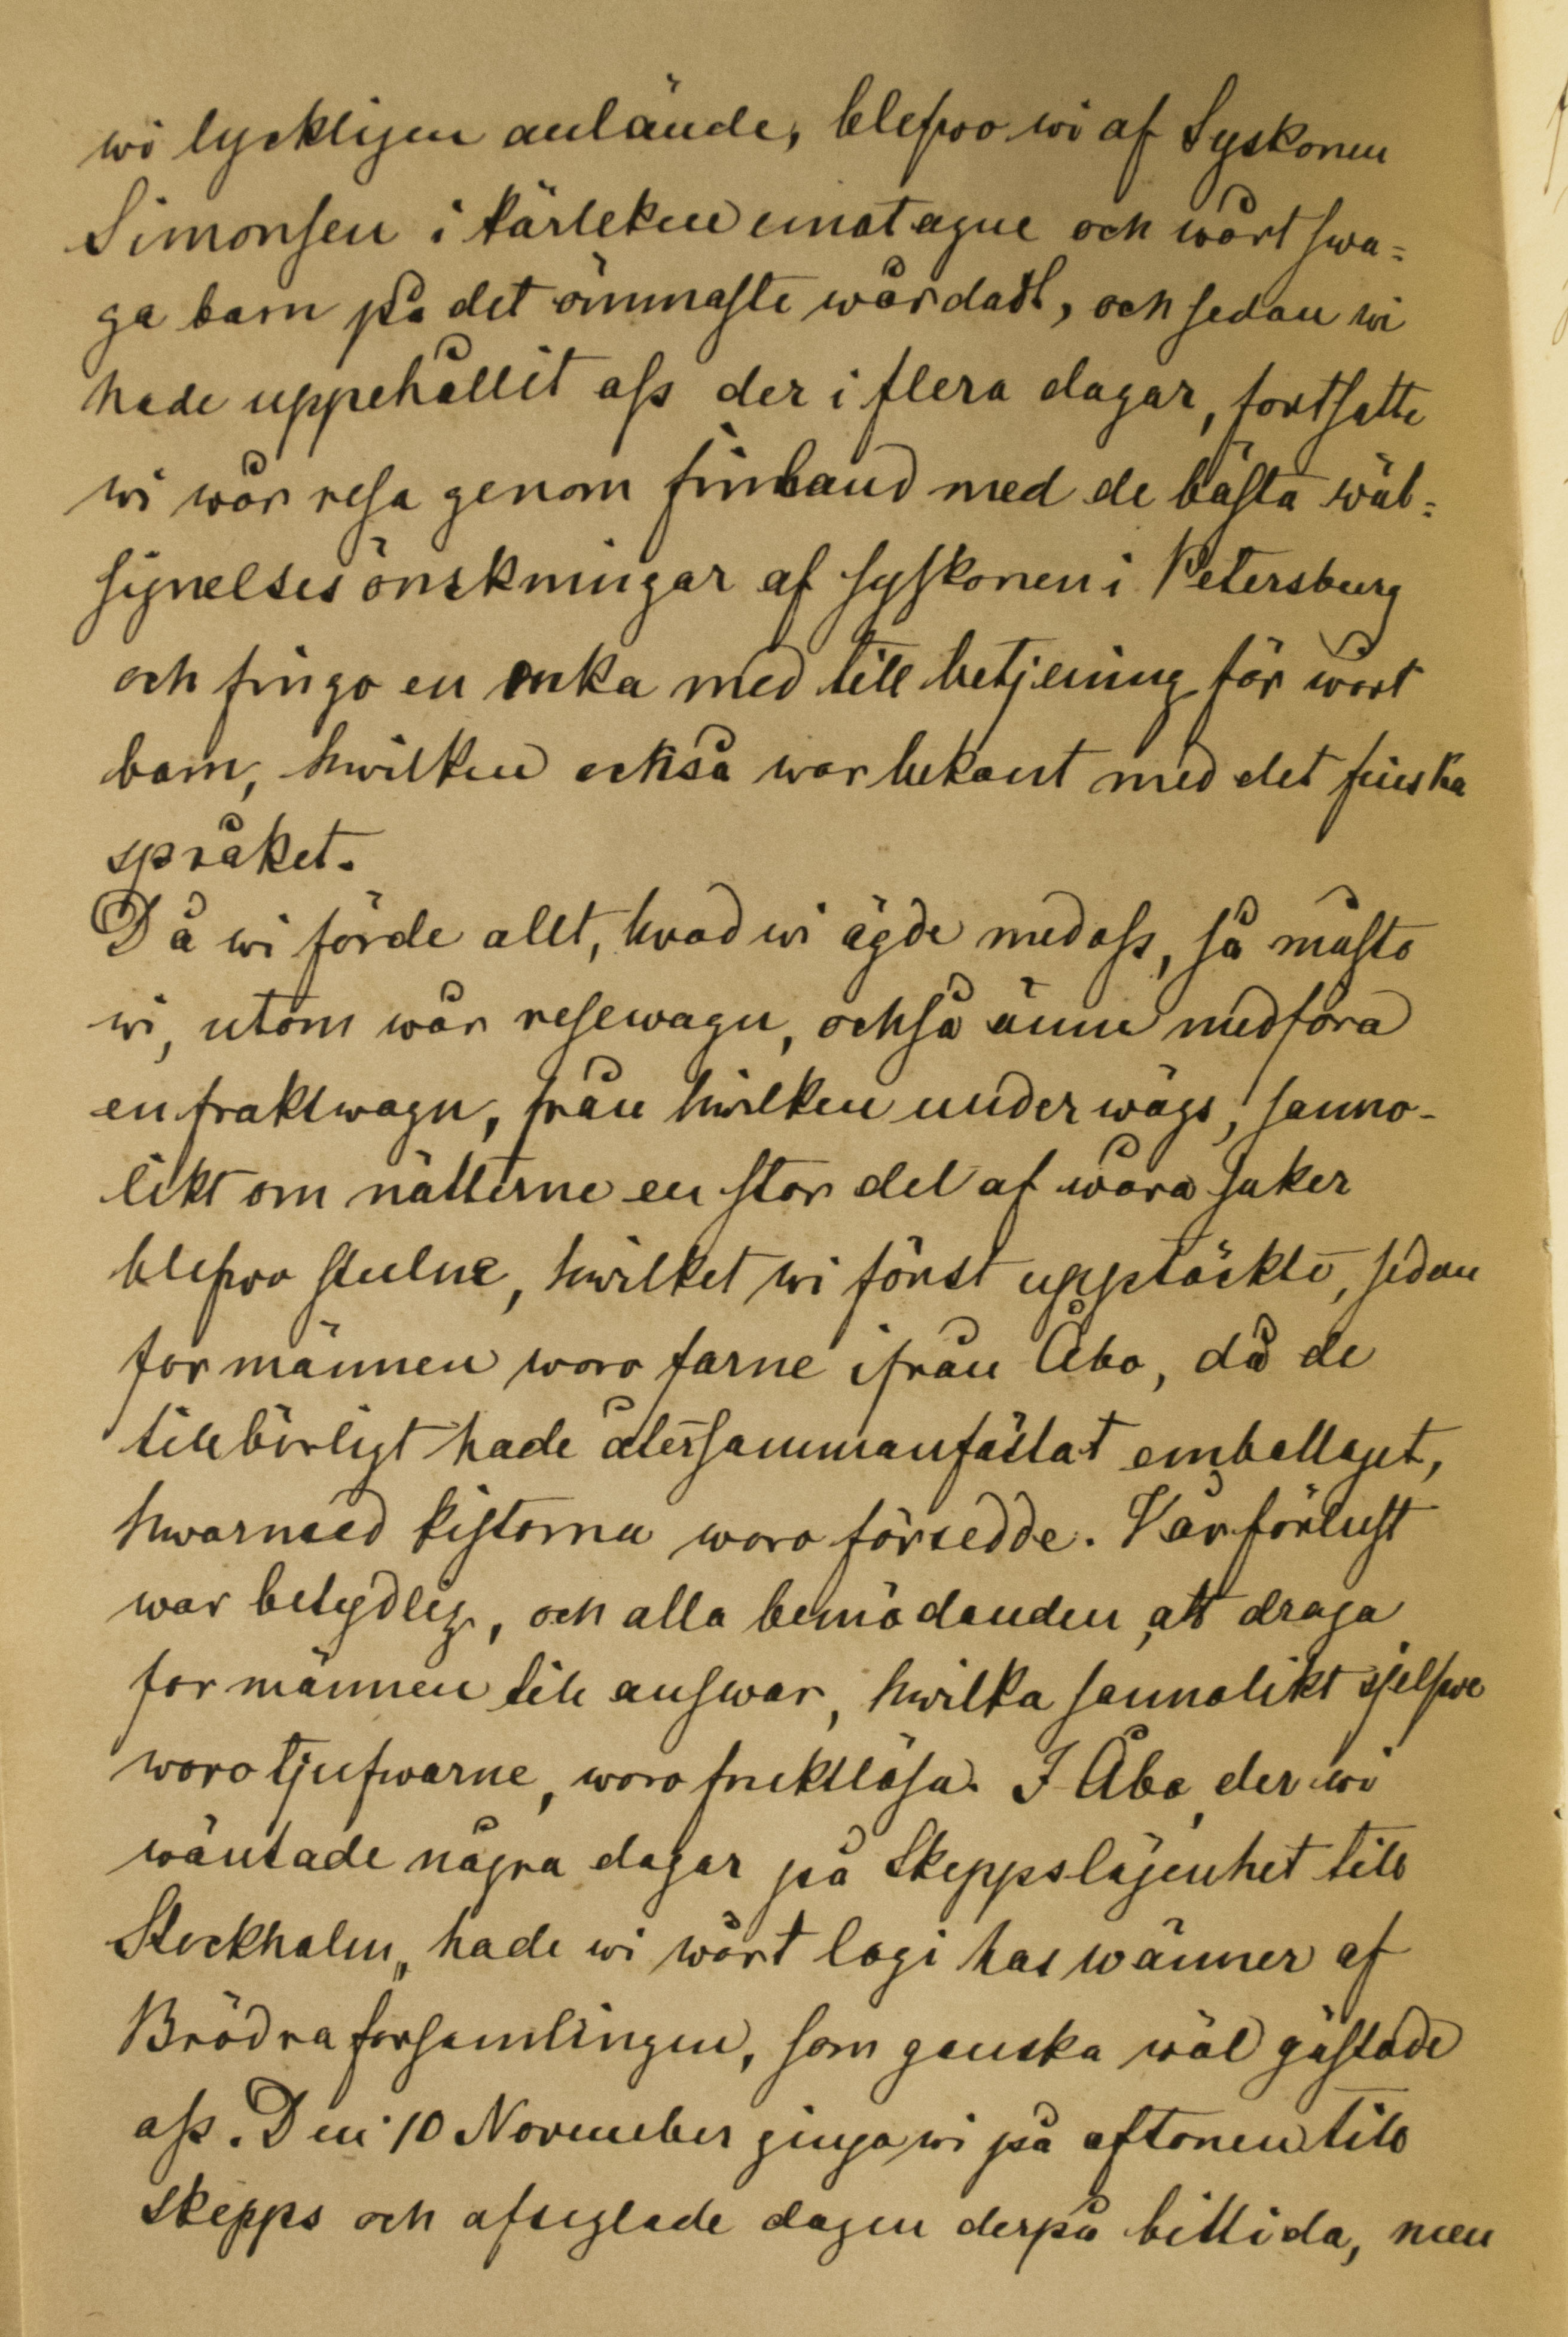 wi lyckligen anlände, blefwo wi af Syskonen
Simonsen i kärleken emotagne och wårt swa=
ga barn på det ömmaste wårdadt, och sedan wi
hade uppehållit oss der i flera dagar, fortsatte
wi wår resa genom Finland med de bästa wäl=
signelses önskningar af syskonen i Petersburg
och fingo en enka med till betjening för wårt
barn, hwilken också war bekant med det finska
språket.
Då wi förde allt, hvad wi ägde med oss, så måsto
wi, utom wår resewagn, också ännu medföra
en fraktwagn, från hwilken under wägs, sanno-
likt om nätterne en stor del af wåra saker
blefwo stulne, hwilket wi först upptäckte, sedan
formännen woro farne ifrån Åbo, då de
tillbörligt hade återsammanfästat emballaget,
hwarmed kistorna woro försedde. Vår förlust
war betydlig, och alla bemödanden att draga
formännen till answar, hwilka sannolikt sjelfwe
woro tjufwarne, woro fruktlösa. I Åbo, der wi
wäntade några dagar på Skeppslägenhet till
Stockholm, hade wi wårt logi hos wänner af
Brödraforsamlingen, som ganska wäl gästade
oss. Den 10 November gingo wi på aftonen till
skepps och afseglade dagen derpå bittida, men